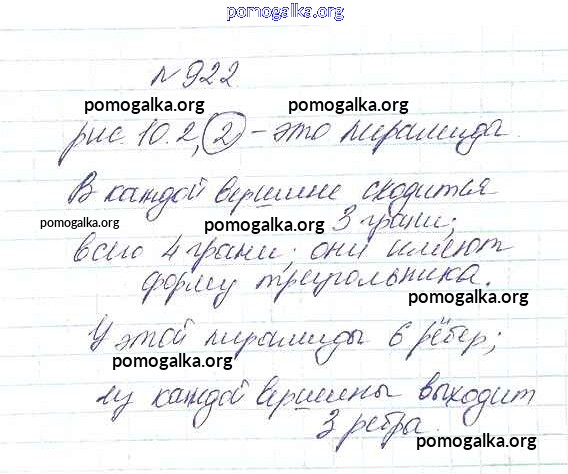 pomogalka.org
№922
pomogalka.org pomogalka.org
рис. 10.2, 2 - это пирамида.
В каждой вершине сходится
pomogalka.org pomogalka.org 3 грани;
всего 4 грани; они имеют
форму треугольника.
pomogalka.org
У этой пирамиды 6 рёбер;
pomogalka.org
из каждой вершины выходит
3 ребра.
pomogalka.org